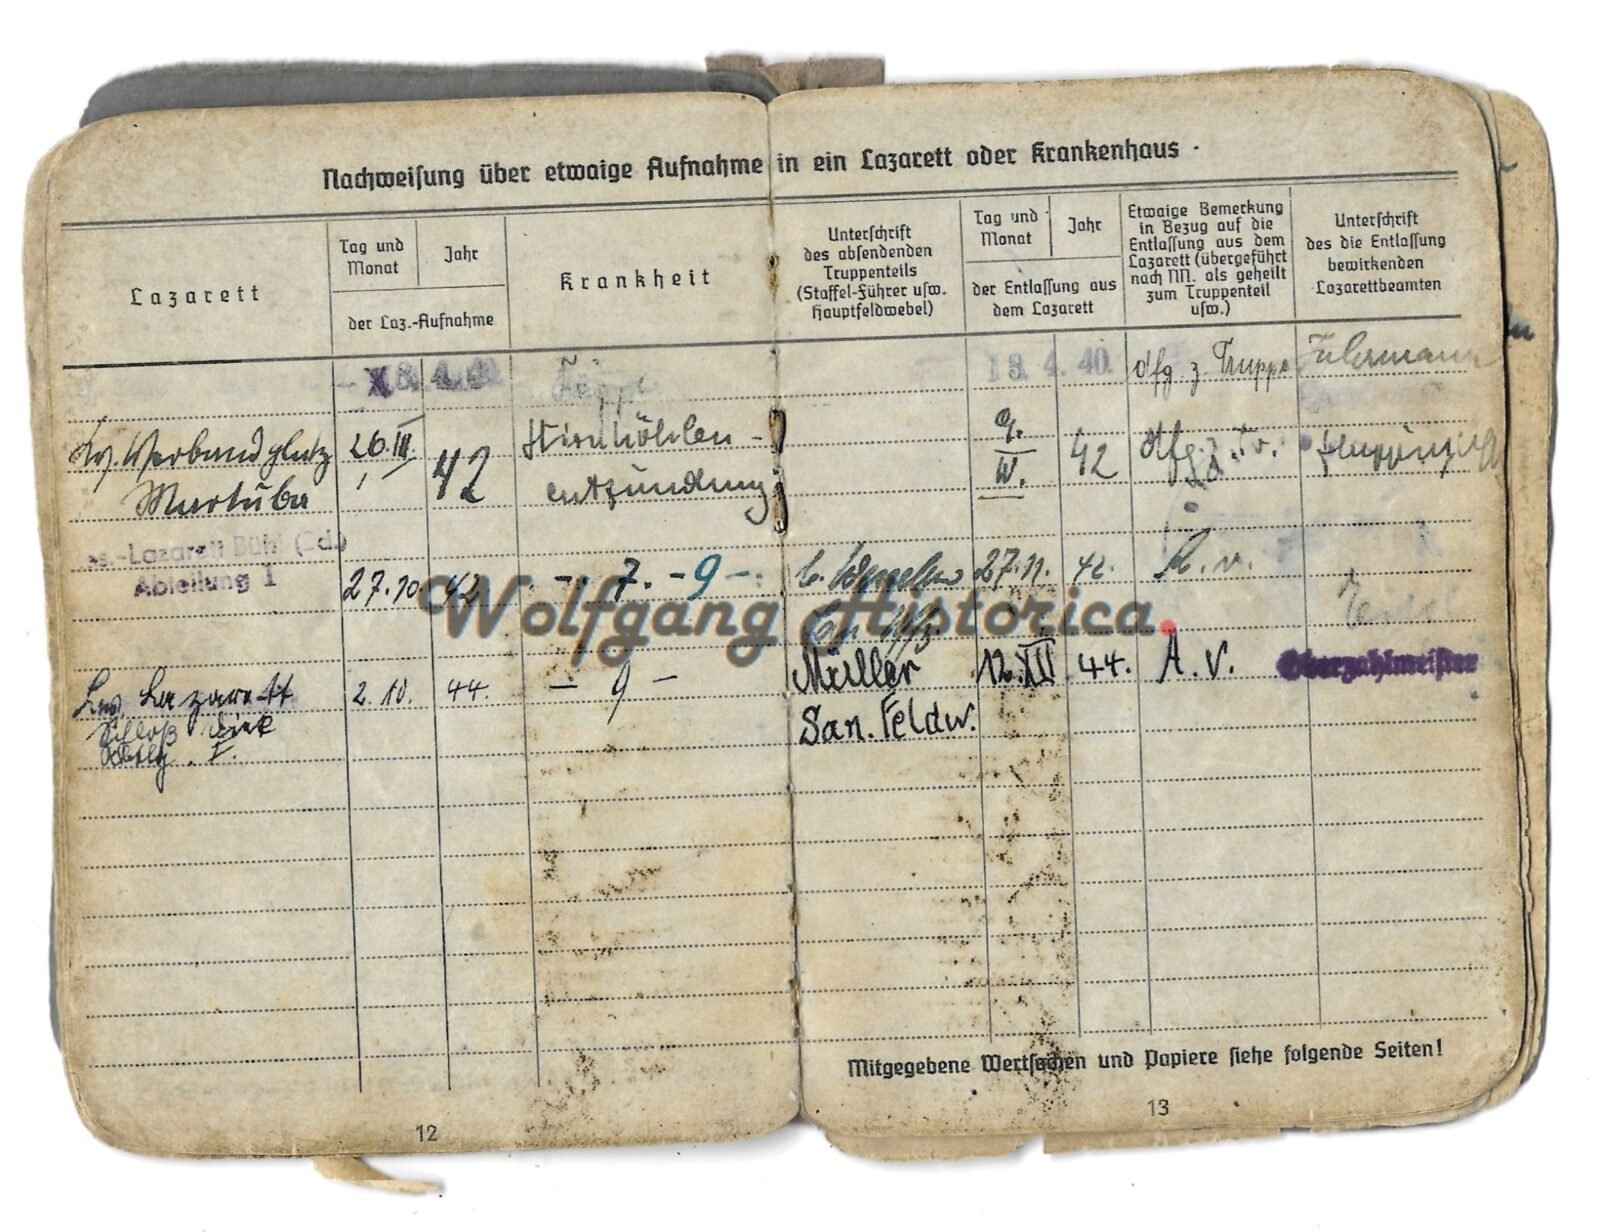 Nachweisung über etwaige Aufnahme in ein Lazarett oder Krankenhaus
Lazarett
Tag und Monat
Jahr
der Laz.-Aufnahme
Krankheit
Unterschrift
des absendenden
Truppenteils
(Staffel-Führer usw.
Hauptfeldwebel)
Tag und Monat
Jahr
der Entlassung aus
dem Lazarett
Etwaige Bemerkung
in Bezug auf die
Entlassung aus dem
Lazarett (übergeführt
nach NN. als geheilt
zum Truppenteil
usw.)
Unterschrift
des die Entlassung
bewirkenden
Lazarettbeamten
8. 4. 40 13. 4. 40. dfg z. Truppe
Verbandplatz 26.III. 42 Stirnhöhlen- 9. IV. 42 dfg. z. Tr.
Martuba entzündung
es.-Lazarett Bühl
Abteilung 1 27.10 42 - 7. - 9 - 27.11. 42.
Uffz
Lw. Lazarett 2.10. 44. - 9 - Müller 12.XII 44. A.V. Oberzahlmeister
Schloß
Abtlg. I. San. Feldw.
Wolfgang Historica.
Mitgegebene Wertsachen und Papiere siehe folgende Seiten!
12
13